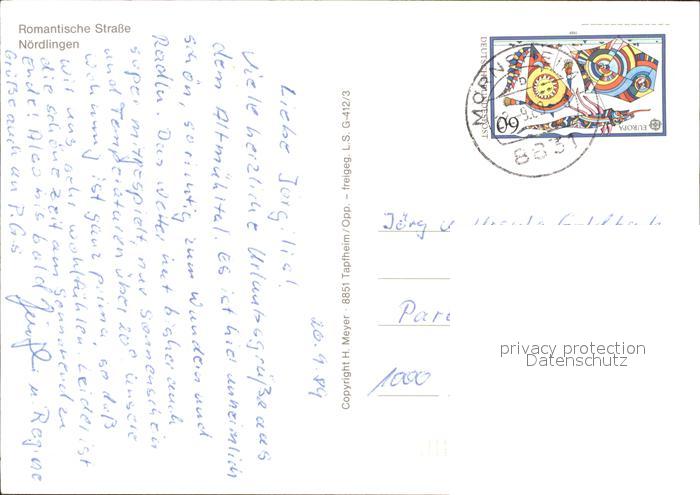 Romantische Straße
Nördlingen
20.9.89
Liebe Jörgilis!
Viele herzliche Urlaubsgrüße aus
dem Altmühltal. Es ist hier unheimlich
schön, so richtig zum Wandern und
Radln. Das Wetter hat bisher auch
super mitgespielt, nur Sonnenschein
und Temperaturen über 20°. Unsere
Wohnung ist ganz prima, so daß
wir uns sehr wohlfühlen. Leider ist
die schöne Zeit am Sonnenenden
Ende! Also bis bald
Grüße auch an P.G.s
u. Regine
Copyright H. Meyer · 8851 Tapfheim/Opp. – freigeg. L.S. G-412/3
DEUTSCHE BUNDESPOST
60
EUROPA
8831
Jörg u
Par
1000
privacy protection
Datenschutz